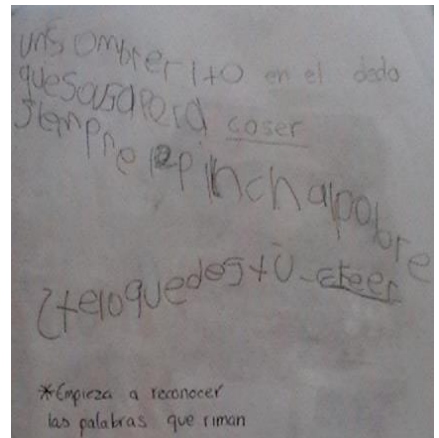 unsombrerito en el dedo
quesausapara coser
siempre lepinchalpobre
¿teloquedestú_creer
*Empieza a reconocer
las palabras que riman